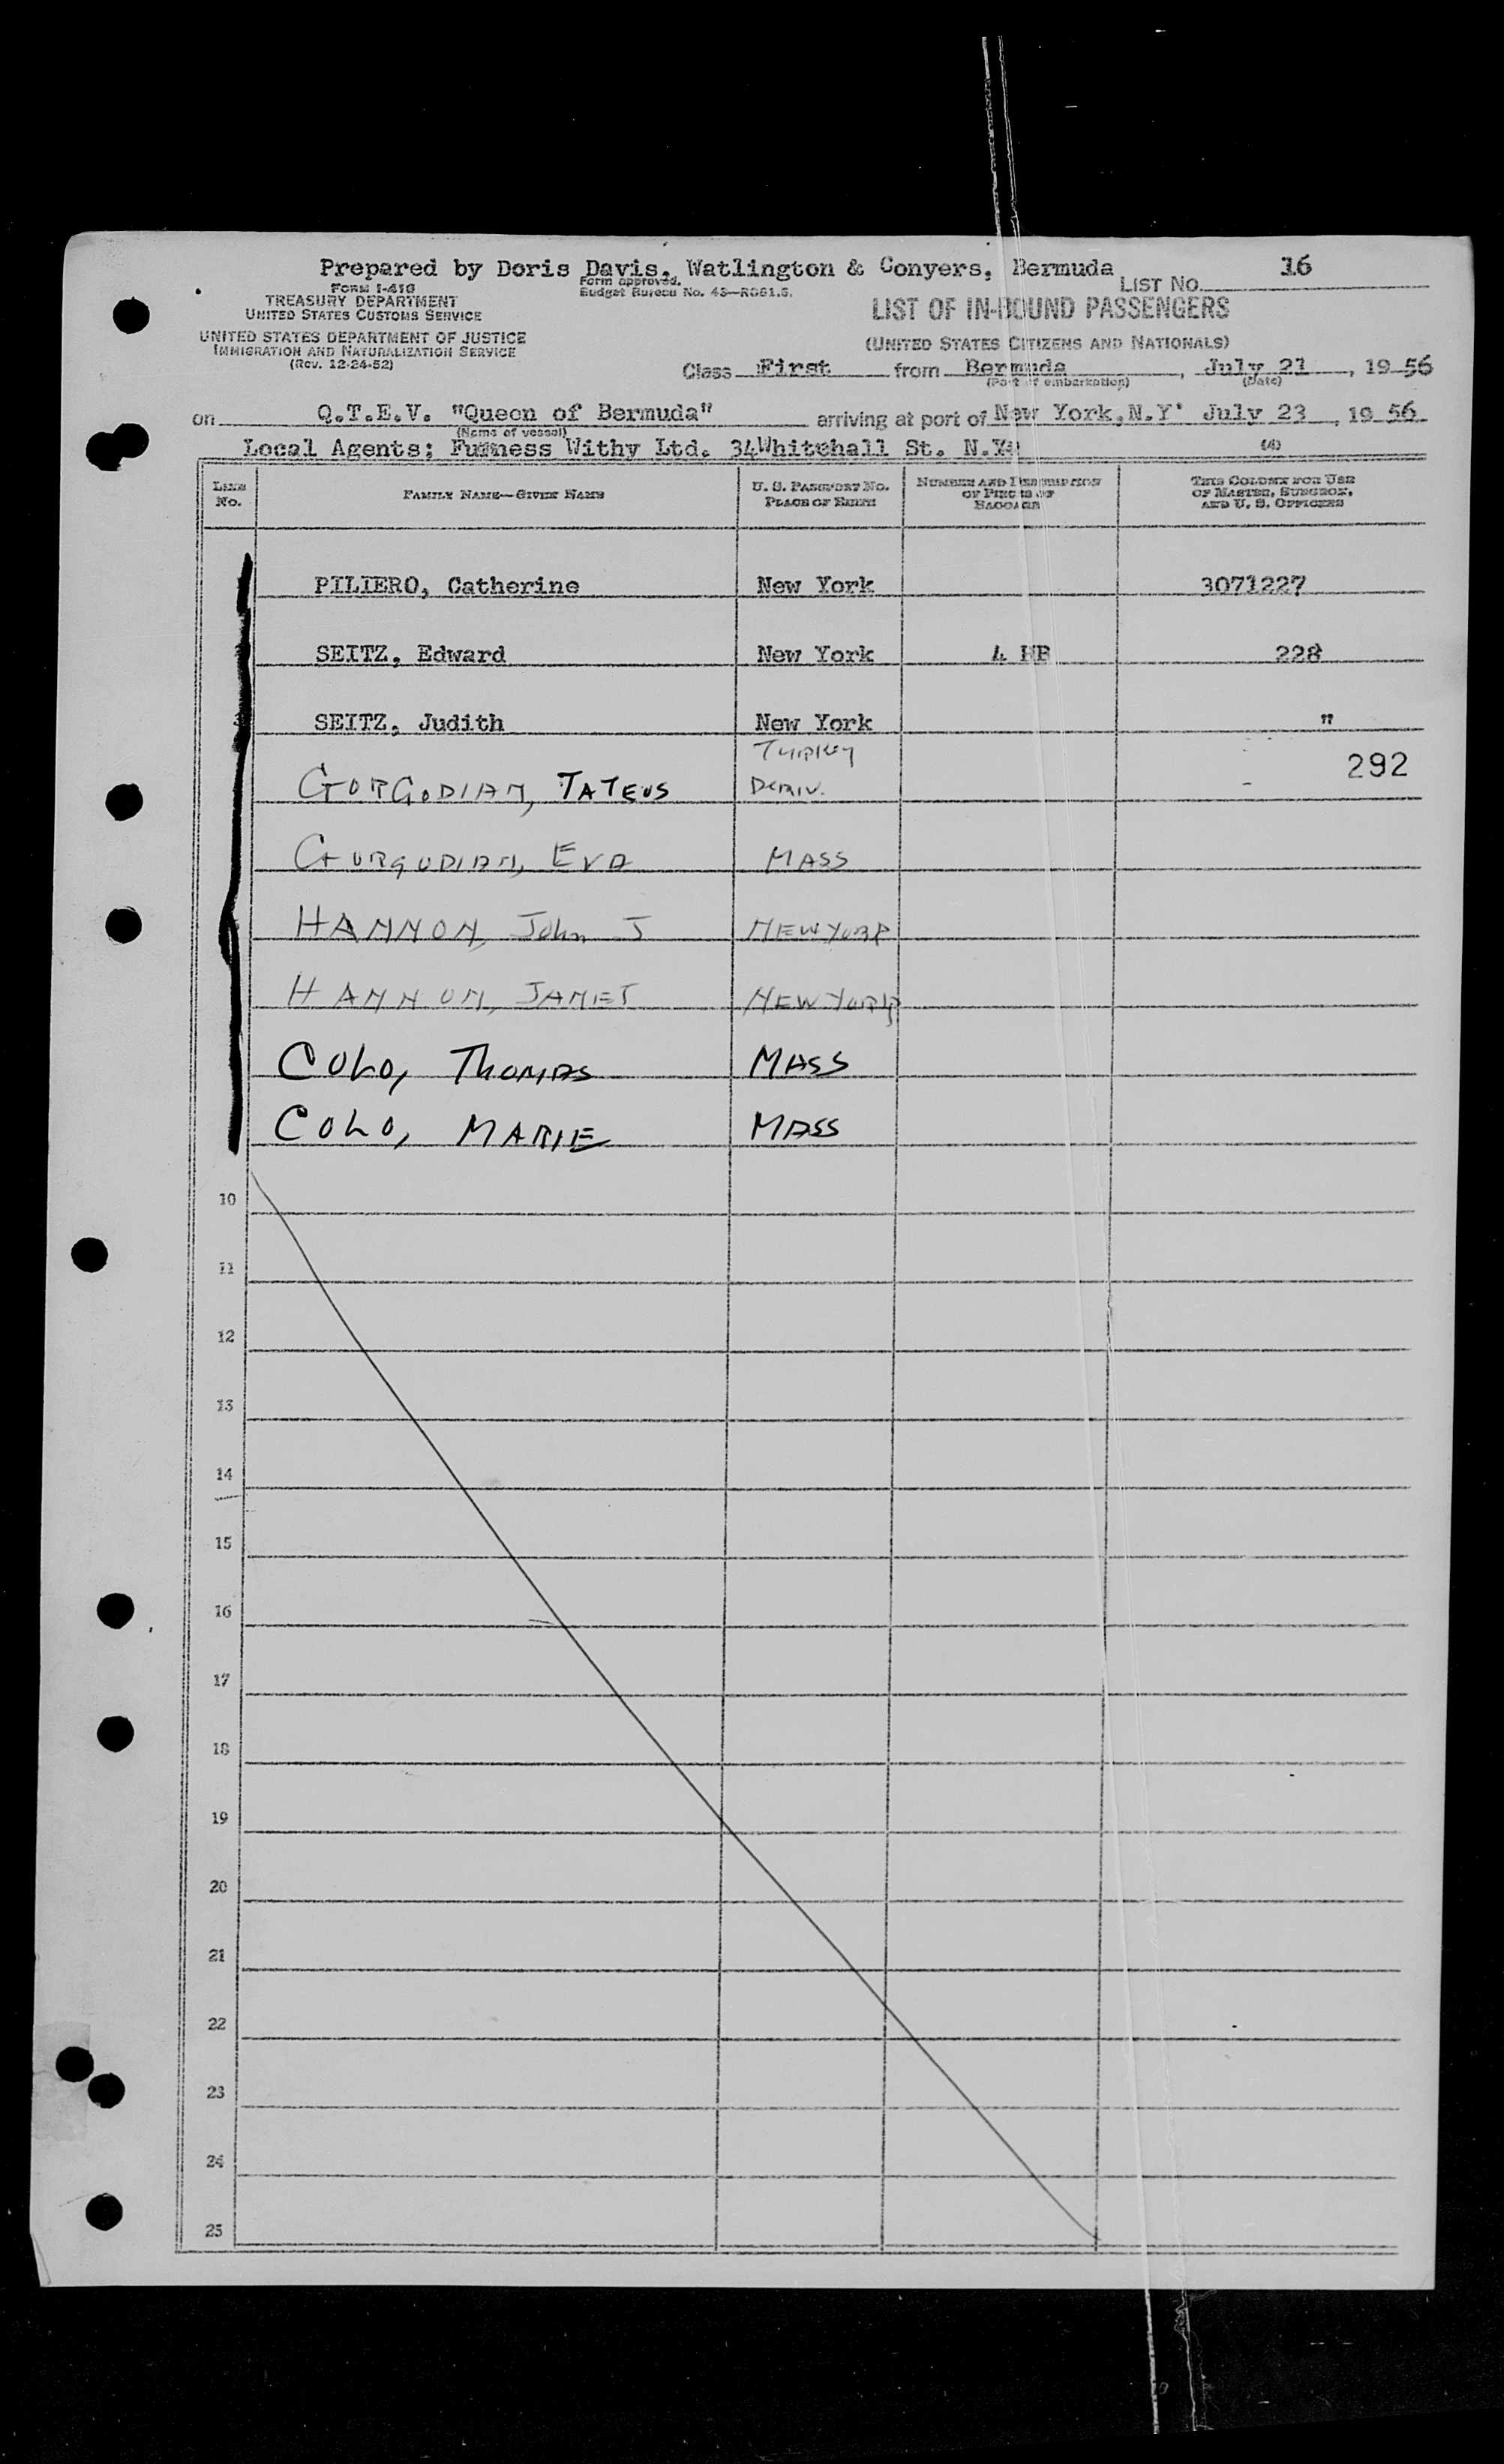 Prepared by Doris Davis, Watlington & Conyers, Bermuda
LIST No. 16
FORM I-418
TREASURY DEPARTMENT
UNITED STATES CUSTOMS SERVICE
UNITED STATES DEPARTMENT OF JUSTICE
IMMIGRATION AND NATURALIZATION SERVICE
(Rev. 12-24-52)
Form approved.
Budget Bureau No. 43—R081.5.
LIST OF IN-BOUND PASSENGERS
(UNITED STATES CITIZENS AND NATIONALS)
Class First from Bermuda, July 21, 1956
(Port of embarkation) (Date)
on Q.T.E.V. "Queen of Bermuda" arriving at port of New York, N.Y. July 23, 1956
(Name of vessel)
Local Agents; Furness Withy Ltd. 34Whitehall St. N.Y.
(4)
LINE No. FAMILY NAME—GIVEN NAME U. S. PASSPORT NO. PLACE OF BIRTH NUMBER AND DESCRIPTION OF PIECES OF BAGGAGE THIS COLUMN FOR USE OF MASTER, SURGEON, AND U. S. OFFICERS
PILIERO, Catherine New York 3071227
SEITZ, Edward New York 4 HB 228
SEITZ, Judith New York "
Turkey
GORGODIAN, TATEUS Deriv. 292
GURGUDIAN, EVA MASS
HANNON, John J NEW YORK
HANNON, JANET NEW YORK
COLO, THOMAS MASS
COLO, MARIE MASS
10
11
12
13
14
15
16
17
18
19
20
21
22
23
24
25